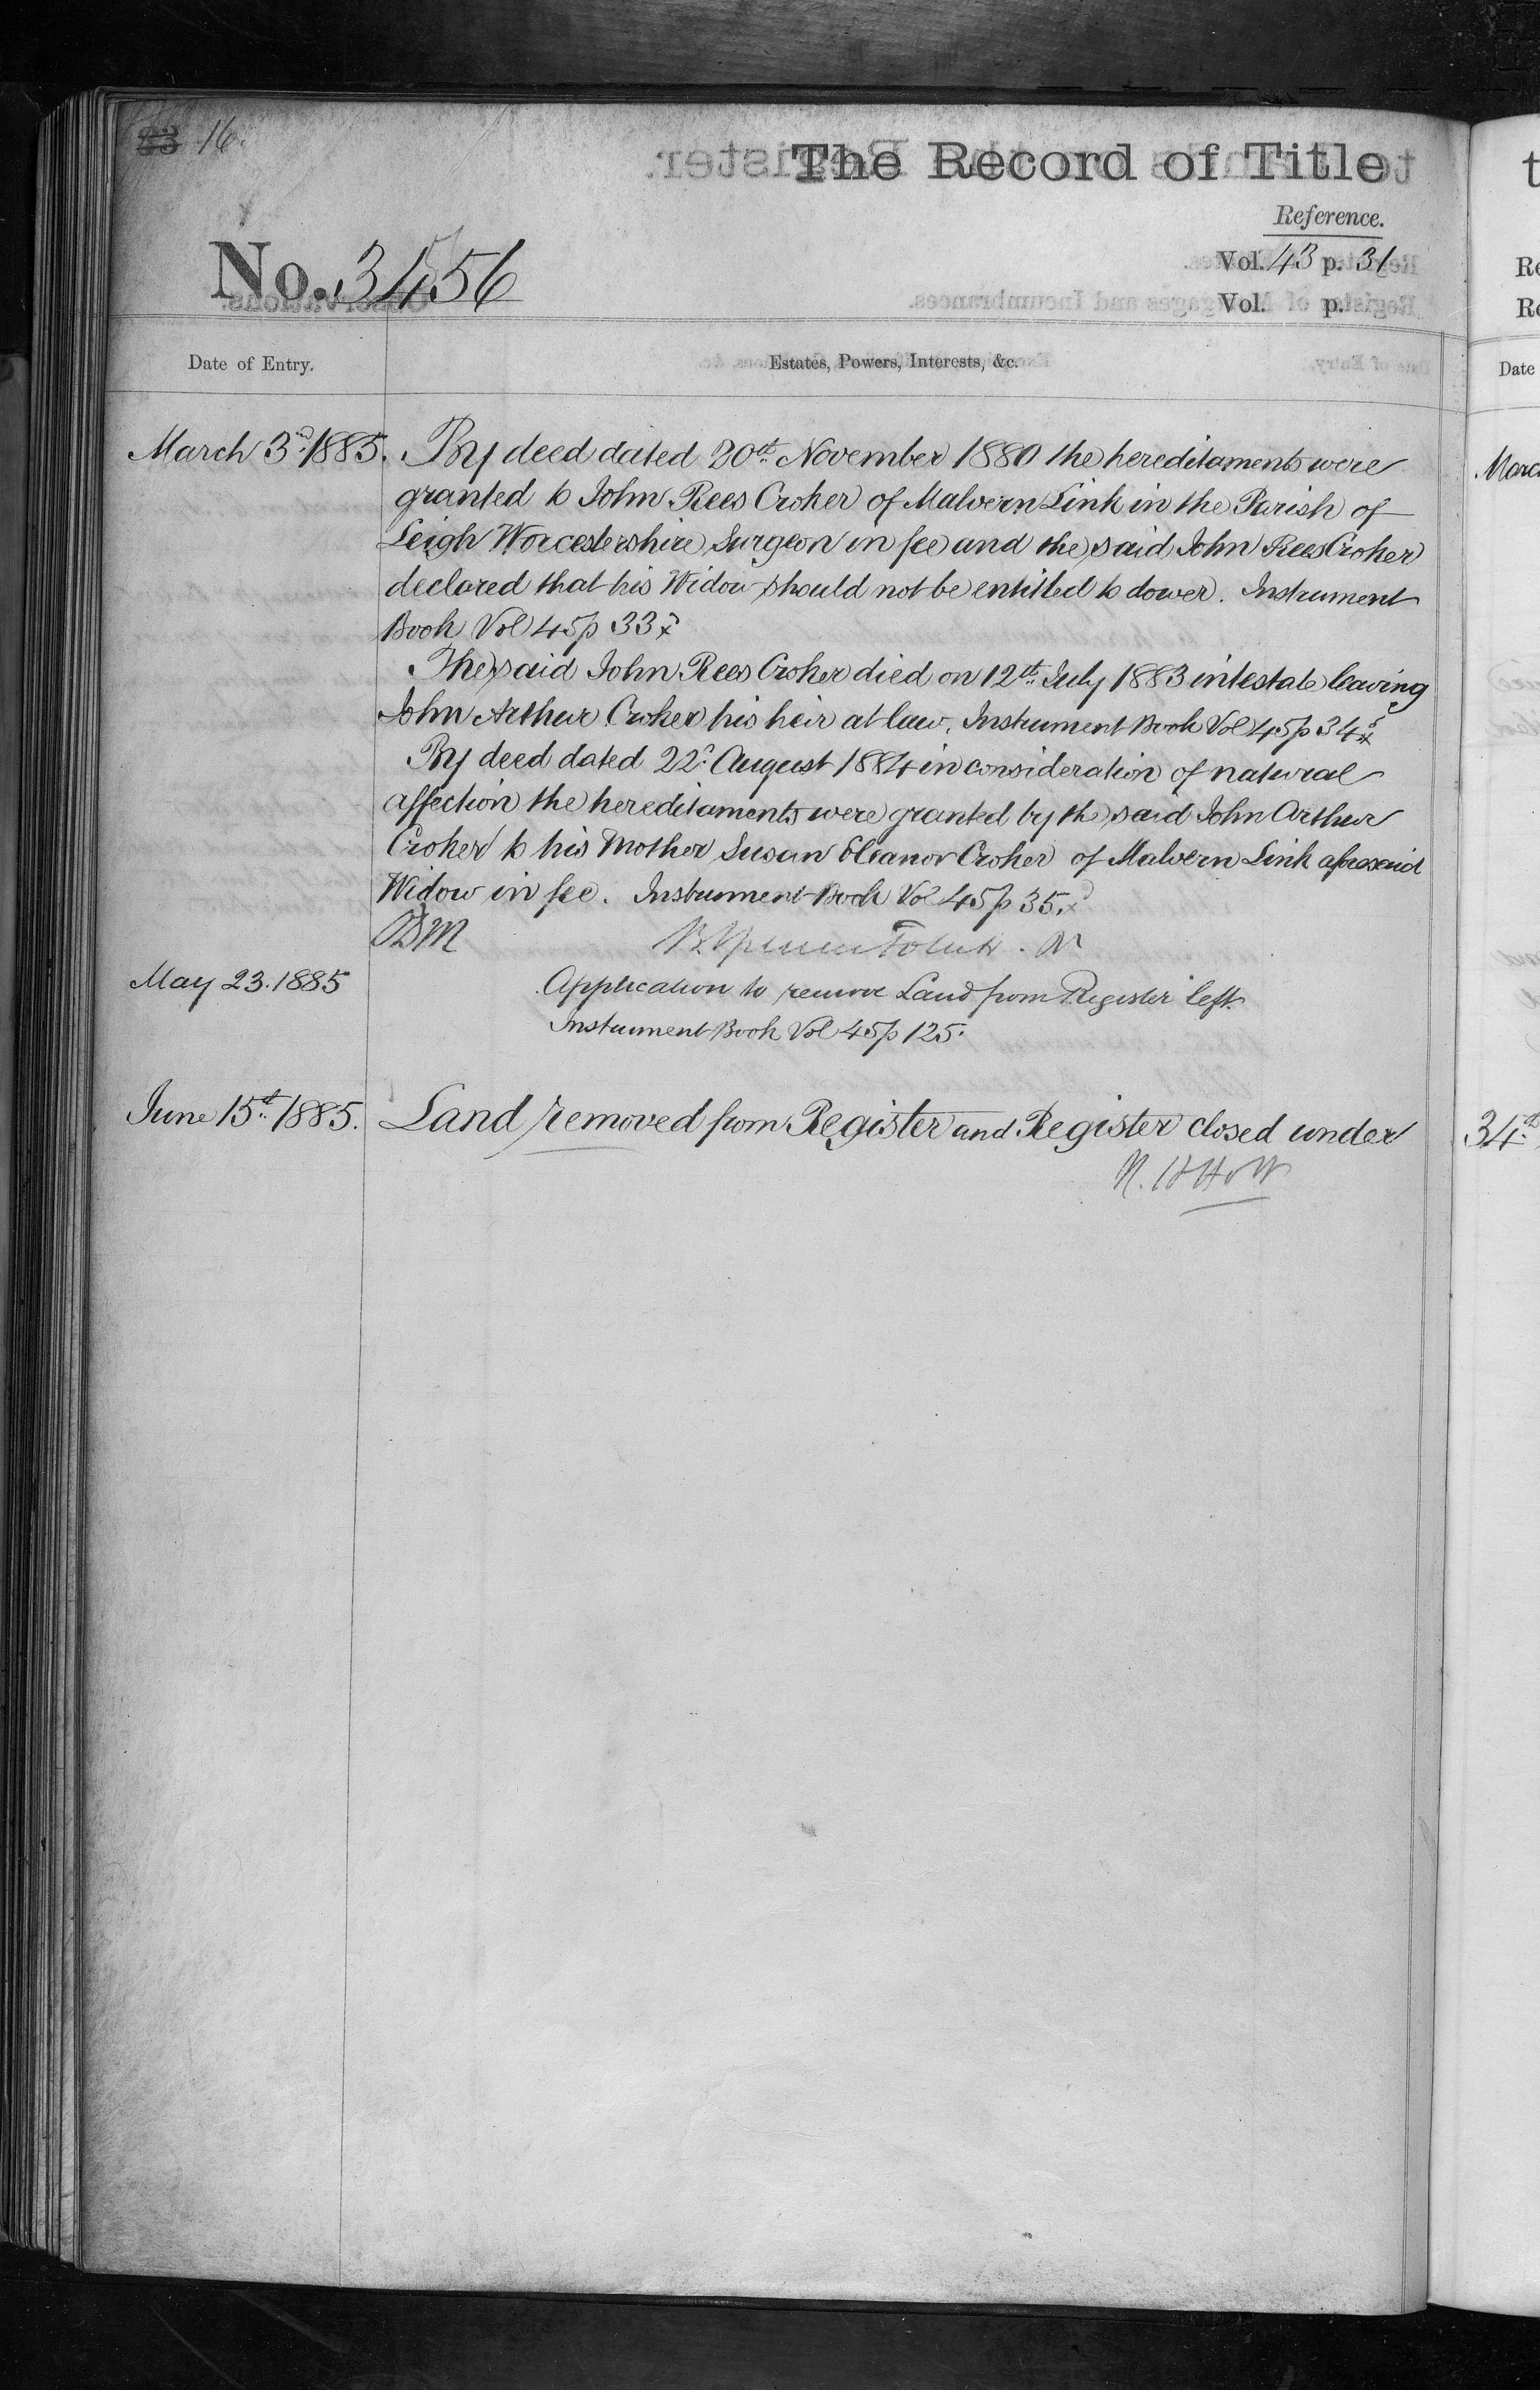 83 16.
The Record of Title
Reference.
No. 3456
Vol. 43 p. 31
Vol. p.
Date of Entry.
Estates, Powers, Interests, &c.
March 3rd 1885. By deed dated 20th November 1880 the hereditaments were
granted to John Rees Croker of Malvern Link in the Parish of
Leigh Worcestershire Surgeon in fee and the said John Rees Croker
declared that his Widow should not be entitled to dower. Instrument
Book Vol 45 p 33
The said John Rees Croker died on 12th July 1883 intestate leaving
John Arthur Croker his heir at law. Instrument Book Vol 45 p 34
By deed dated 22d August 1884 in consideration of natural
affection the hereditaments were granted by the said John Arthur
Croker to his Mother Susan Eleanor Croker of Malvern Link aforesaid
Widow in fee. Instrument Book Vol 45 p 35.
May 23. 1885 Application to remove Land from Register left.
Instrument Book Vol 45 p 125.
June 15th 1885. Land removed from Register and Register closed under
34th